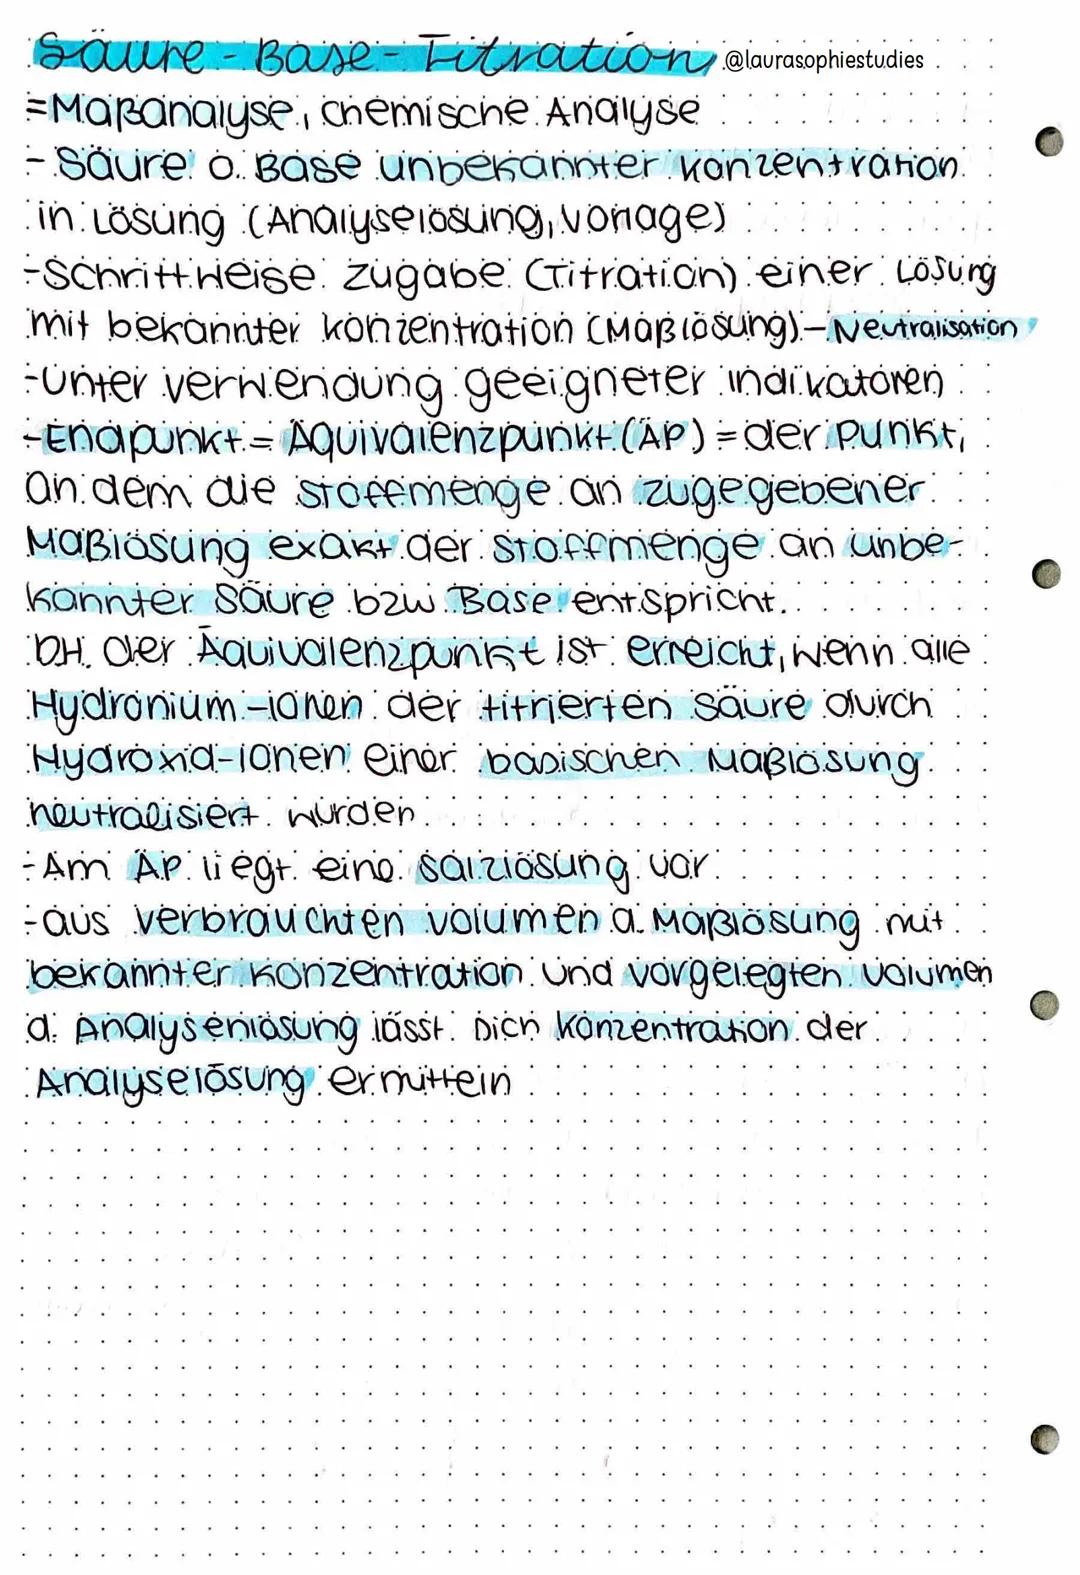 Säure-Base-Titration @laurasophiestudies
=Maßanalyse, chemische Analyse
- Säure o. Base unbekannter Konzentration
in Lösung (Analyselösung, Vorlage)
-Schrittweise Zugabe (Titration) einer Lösung
mit bekannter Konzentration (Maßlösung)-Neutralisation
-Unter verwendung geeigneter indikatoren
-Endpunkt = Äquivalenzpunkt (ÄP) = der Punkt,
an dem die Stoffmenge an zugegebener
Maßlösung exakt der Stoffmenge an unbe-
kannter Säure bzw. Base entspricht.
DH. der Äquivalenzpunkt ist erreicht, wenn alle
Hydronium-ionen der titrierten Säure durch
Hydroxid-ionen einer basischen Maßlösung
neutralisiert wurden
-Am ÄP liegt eine Salzlösung vor
-aus verbrauchten volumen d. Maßlösung mit
bekannter Konzentration und vorgelegten Volumen
d. Analysenlösung lässt sich Konzentration der
Analyselösung ermitteln